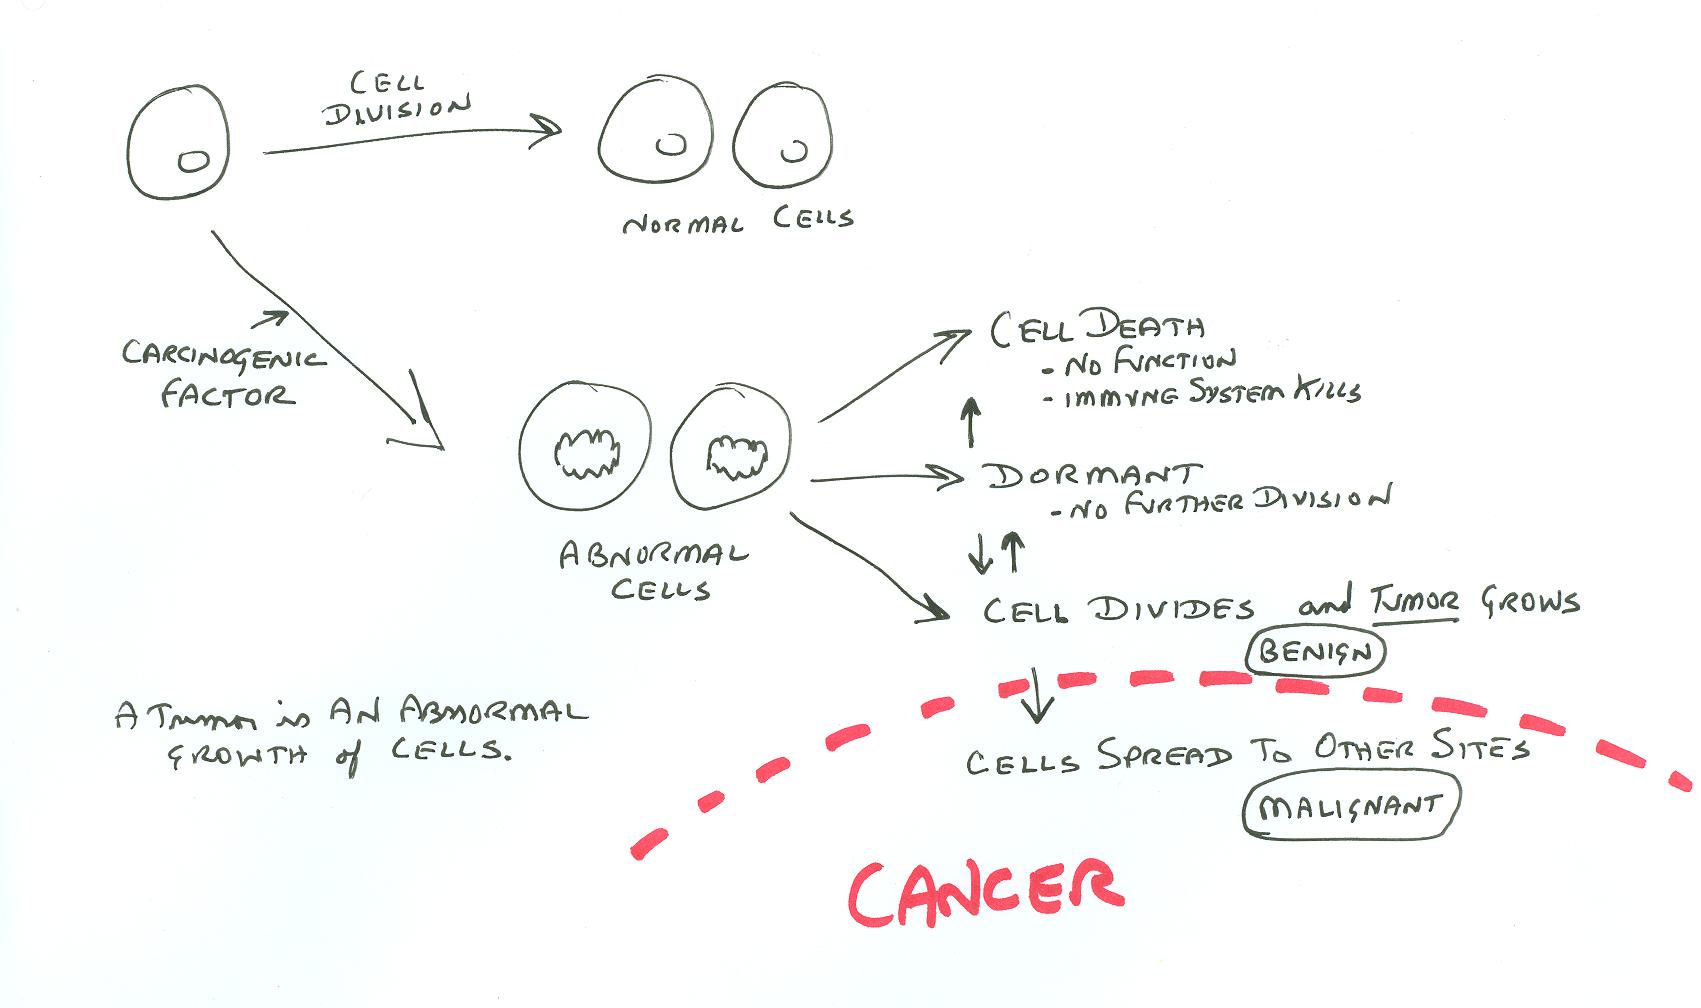 CELL
DIVISION
NORMAL CELLS
CARCINOGENIC
FACTOR
ABNORMAL
CELLS
CELL DEATH
- NO FUNCTION
- IMMUNE SYSTEM KILLS
DORMANT
- NO FURTHER DIVISION
CELL DIVIDES and TUMOR GROWS
BENIGN
A Tumor is AN ABNORMAL
GROWTH of CELLS.
CELLS SPREAD TO OTHER SITES
MALIGNANT
CANCER